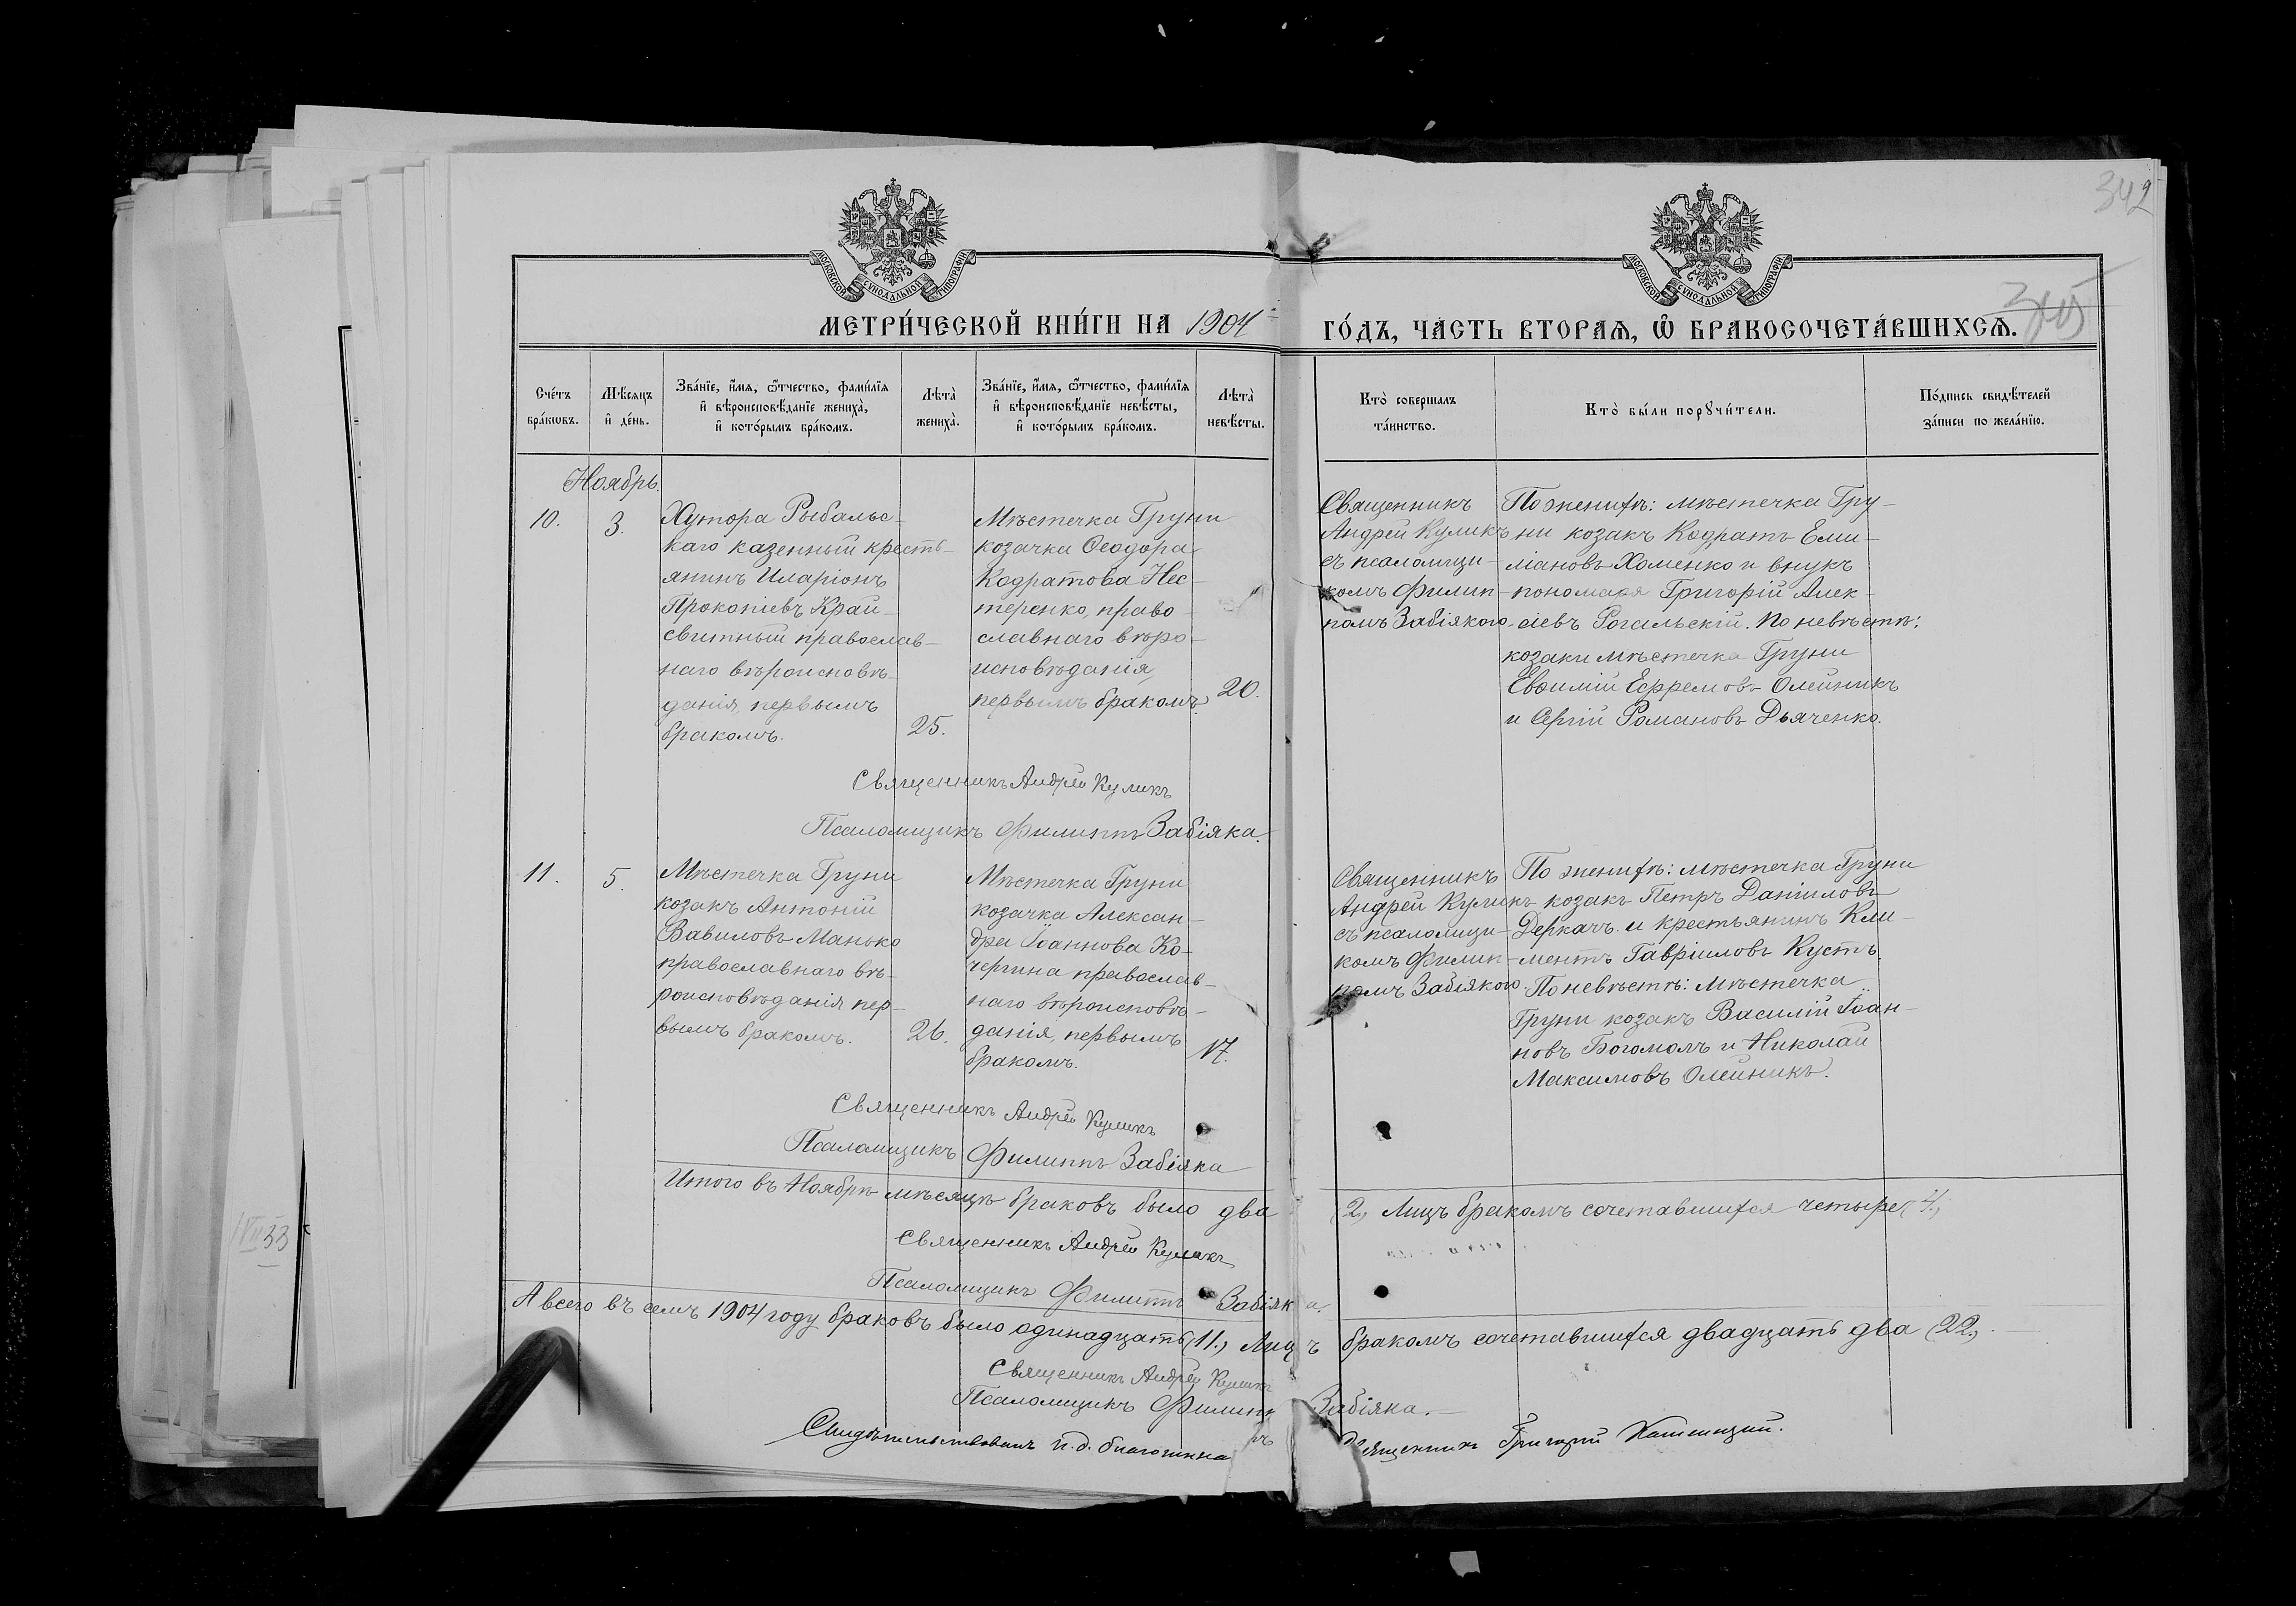 342
МОСКОВСКОЙ СѴНОДАЛЬНОЙ ТИПОГРАФІИ
МОСКОВСКОЙ СѴНОДАЛЬНОЙ ТИПОГРАФІИ
МЕТРИ́ЧЕСКОЙ КНИ́ГИ НА 1904 ГО́ДЪ, ЧА́СТЬ ВТОРАѦ, Ѡ҆ БРАКОСОЧЕТА́ВШИХСѦ.
Сче́тъ бра́кѡвъ.
Мѣ́сѧцъ и҆ де́нь.
Зва́нїе, и҆́мѧ, ѻ҆́тчество, фами́лїѧ и҆ вѣроисповѣ́данїе жениха̀, и҆ кото́рымъ бра́комъ.
Лѣта̀ жениха̀.
Зва́нїе, и҆́мѧ, ѻ҆́тчество, фами́лїѧ и҆ вѣроисповѣ́данїе невѣ́сты, и҆ кото́рымъ бра́комъ.
Лѣта̀ невѣ́сты.
Кто̀ соверша́лъ та́инство.
Кто̀ бы́ли порꙋчи́тели.
По́дпись свидѣ́телей за́писи по жела́нїю.
Ноябрь.
10.
3.
Хутора Рыбальс-
каго казенный кресть-
янинъ Иларіонъ
Прокопіевъ Край-
свитный православ-
наго вѣроисповѣ-
данія, первымъ
бракомъ.
25.
Мѣстечка Груни
козачка Ѳеодора
Кодратова Нес-
теренко, право-
славнаго вѣро-
исповѣданія,
первымъ бракомъ.
20.
Священникъ
Андрей Куликъ
съ псаломщи-
комъ Филип-
помъ Забіякою.
По женихѣ: мѣстечка Гру-
ни козакъ Кодратъ Еми-
ліановъ Хоменко и внукъ
пономаря Григорій Алек-
сіевъ Рогальскій. По невѣстѣ:
козаки мѣстечка Груни
Евѳимій Ефремовъ Олейникъ
и Сергій Романовъ Дьяченко.
Священникъ Андрей Куликъ
Псаломщикъ Филиппъ Забіяка.
11.
5.
Мѣстечка Груни
козакъ Антоній
Вавиловъ Манько
православнаго вѣ-
роисповѣданія пер-
вымъ бракомъ.
26.
Мѣстечка Груни
козачка Алексан-
дра Іоаннова Ко-
чергина православ-
наго вѣроисповѣ-
данія, первымъ
бракомъ.
17.
Священникъ
Андрей Куликъ
съ псаломщи-
комъ Филип-
помъ Забіякою.
По женихѣ: мѣстечка Груни
козакъ Петръ Даніиловъ
Деркачъ и крестьянинъ Кли-
ментъ Гавріиловъ Кустъ.
По невѣстѣ: мѣстечка
Груни козакъ Василій Іоан-
новъ Богомолъ и Николай
Максимовъ Олейникъ.
Священникъ Андрей Куликъ
Псаломщикъ Филиппъ Забіяка
Итого въ Ноябрѣ мѣсяцѣ браковъ было два (2) Лицъ бракомъ сочетавшихся четыре (4)
Священникъ Андрей Куликъ
Псаломщикъ Филиппъ Забіяка.
А всего въ семъ 1904 году браковъ было одинадцать (11.) Лицъ бракомъ сочетавшихся двадцать два (22).
Священникъ Андрей Куликъ
Псаломщикъ Филиппъ Забіяка.
Свидѣтельствовалъ и. д. благочинна Священникъ Григорій